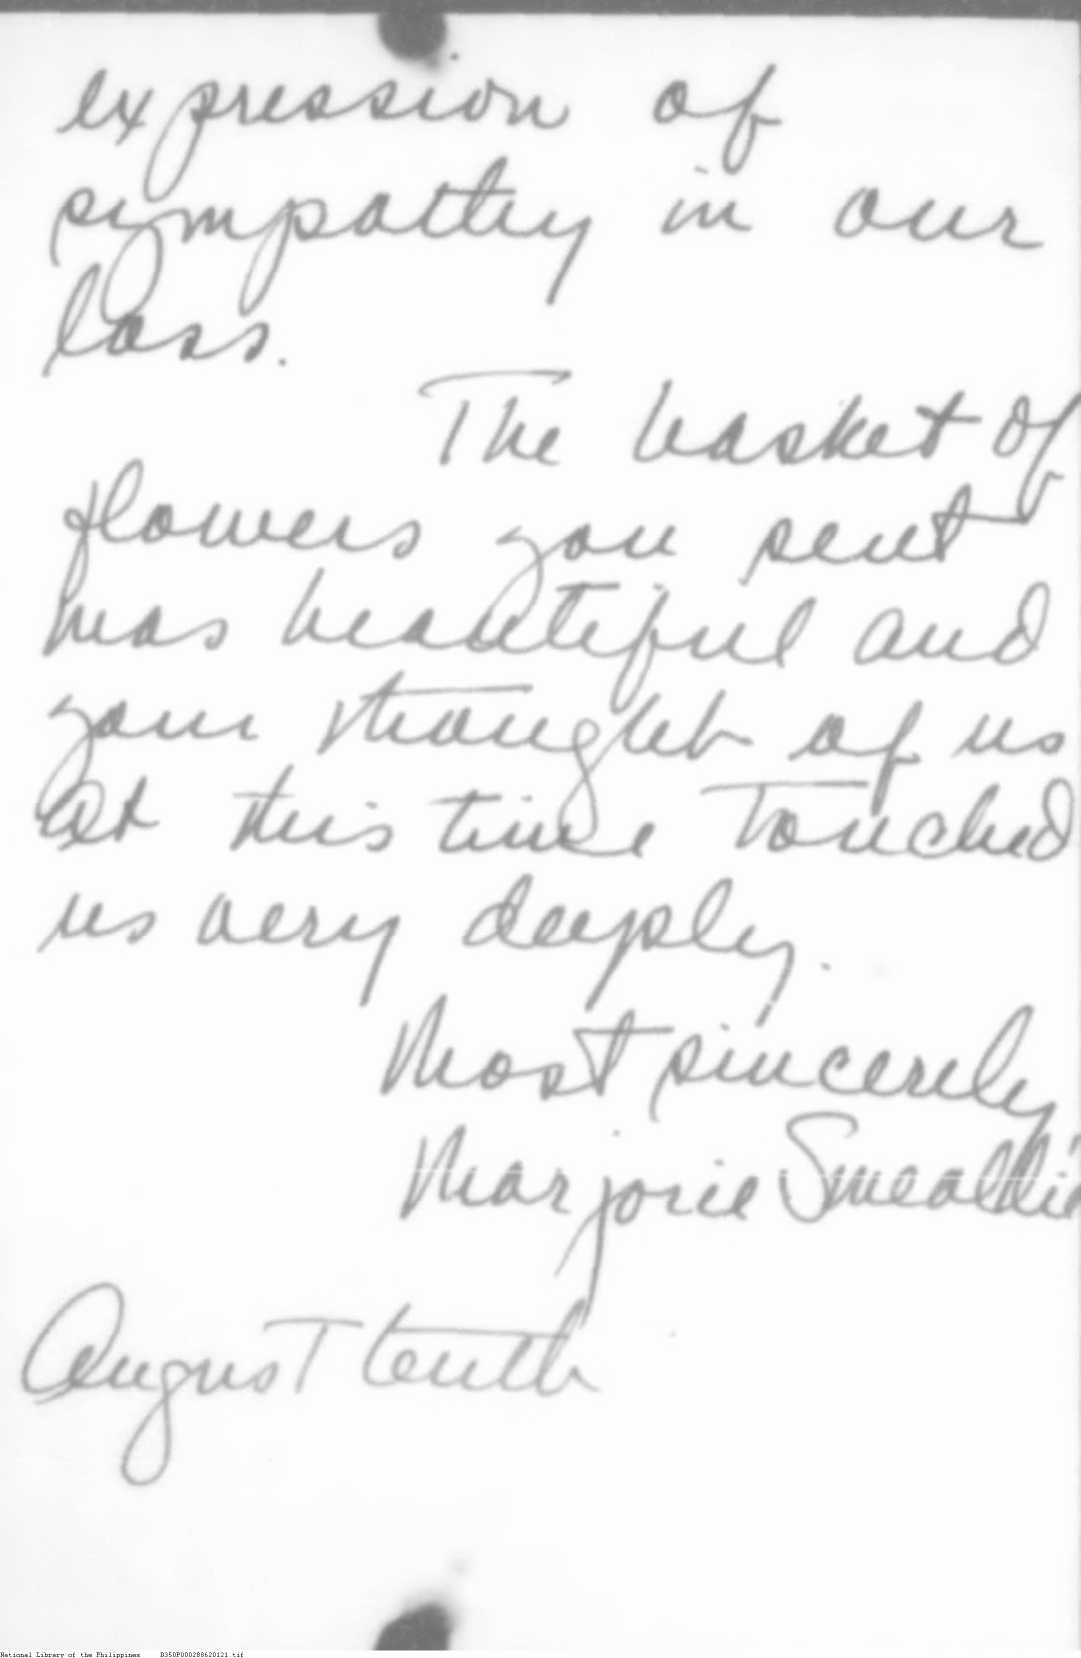 expression of
sympathy in our
loss.
The basket of
flowers you sent
was beautiful and
your thought of us
at this time touched
us very deeply.
Most sincerely
Marjorie Smeallie
August tenth
National Library of the Philippines D350P000288620121.tif